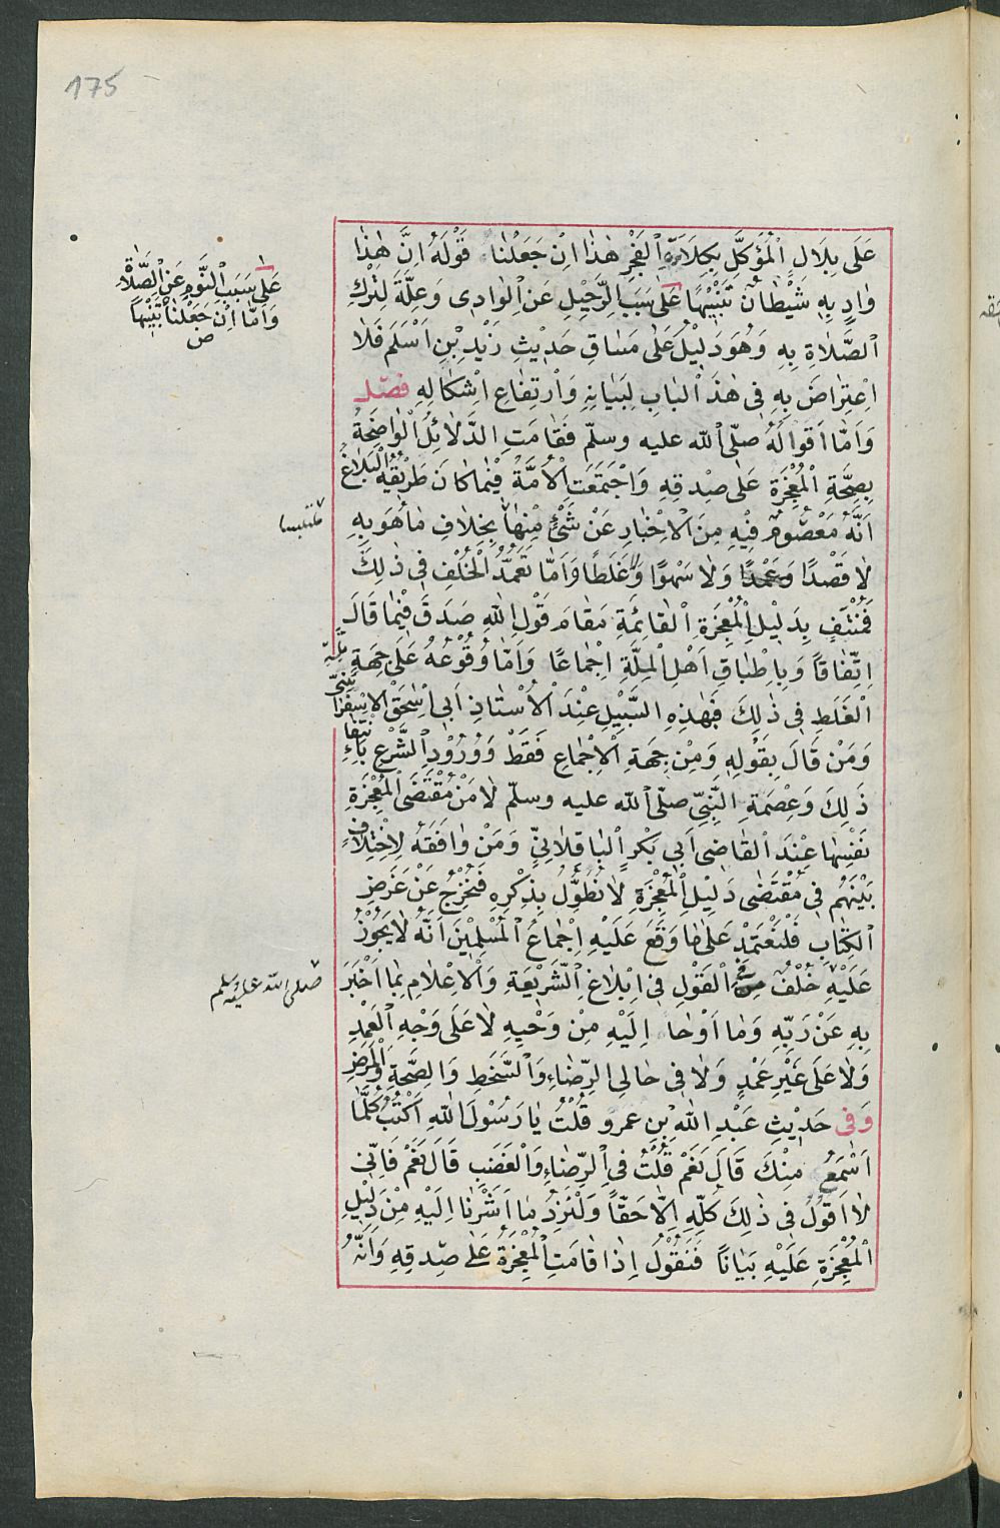 175
عَلَى بِلَالٍ الْمُؤَكَّلِ بِكِلَاءَةِ الْفَجْرِ هٰذَا اِنْ جَعَلْنَا قَوْلَهُ اِنَّ هٰذَا
وَادٍ بِهِ شَيْطَانٌ تَنْبِيْهًا عَلَى سَبَبِ الرَّحِيْلِ عَنِ الْوَادِى وَعِلَّةً لِتَرْكِ
الصَّلَاةِ بِهِ وَهُوَ دَلِيْلٌ عَلَى مَسَاقِ حَدِيْثِ زَيْدِ بْنِ اَسْلَمَ فَلَا
اعْتِرَاضَ بِهِ فِى هٰذَا الْبَابِ لِبَيَانِهِ وَارْتِفَاعِ اِشْكَالِهِ فصل
وَاَمَّا اَقْوَالُهُ صلّى الله عليه وسلّم فَقَامَتِ الدَّلَائِلُ الْوَاضِحَةُ
بِصِحَّةِ الْمُعْجِزَةِ عَلَى صِدْقِهِ وَاجْتَمَعَتِ الْاُمَّةُ فِيْمَا كَانَ طَرِيْقُهُ الْبَلَاغَ
اَنَّهُ مَعْصُومٌ فِيْهِ مِنَ الْاِخْبَارِ عَنْ شَئٍ مِنْهَا بِخِلَافِ مَا هُوَ بِهِ
لَا قَصْدًا وَعَمْدًا وَلَا سَهْوًا وَلَا غَلَطًا وَاَمَّا تَعَمُّدُ الْخُلْفِ فِى ذٰلِكَ
فَمُنْتَفٍ بِدَلِيْلِ الْمُعْجِزَةِ الْقَائِمَةِ مَقَامَ قَوْلِ اللهِ صَدَقَ فِيْمَا قَالَ
اِتِّفَاقًا وَبِاِطْبَاقِ اَهْلِ الْمِلَّةِ اِجْمَاعًا وَاَمَّا وُقُوْعُهُ عَلَى جِهَةِ
الْغَلَطِ فِى ذٰلِكَ فَبِهٰذِهِ السَّبِيْلِ عِنْدَ الْاُسْتَاذِ اَبِى اِسْحٰقَ الْاِسْفَرَائِنِىِّ
وَمَنْ قَالَ بِقَوْلِهِ وَمِنْ جِهَةِ الْاِجْمَاعِ فَقَطْ وَوُرُوْدِ الشَّرْعِ بِانْتِفَاءِ
ذٰلِكَ وَعِصْمَةِ النَّبِىِّ صلّى الله عليه وسلّم لَا مِنْ مُقْتَضَى الْمُعْجِزَةِ
نَفْسِهَا عِنْدَ الْقَاضِى اَبِى بَكْرٍ الْبَاقِلَانِىِّ وَمَنْ وَافَقَهُ لِاِخْتِلَافٍ
بَيْنَهُمْ فِى مُقْتَضٰى دَلِيْلِ الْمُعْجِزَةِ لَا نُطَوِّلُ بِذِكْرِهِ فَنَخْرُجُ عَنْ غَرَضِ
الْكِتَابِ فَلْنَعْتَمِدْ عَلَى مَا وَقَعَ عَلَيْهِ اِجْمَاعُ الْمُسْلِمِيْنَ اَنَّهُ لَا يَجُوْزُ
عَلَيْهِ خُلْفٌ فِى الْقَوْلِ فِى اِبْلَاغِ الشَّرِيْعَةِ وَالْاِعْلَامِ بِمَا اَخْبَرَ
بِهِ عَنْ رَبِّهِ وَمَا اَوْحَا اِلَيْهِ مِنْ وَحْيِهِ لَا عَلَى وَجْهِ الْعَمْدِ
وَلَا عَلَى غَيْرِ عَمْدٍ وَلَا فِى حَالِى الرِّضَاءِ وَالسَّخَطِ وَالصِّحَّةِ وَالْمَرَضِ
وَفِى حَدِيْثِ عَبْدِ اللهِ بْنِ عمرو قُلْتُ يَا رَسُوْلَ اللهِ اَكْتُبُ كُلَّمَا
اَسْمَعُ مِنْكَ قَالَ نَعَمْ قُلْتُ فِى الرِّضَاءِ وَالْغَضَبِ قَالَ نَعَمْ فَاِنِّى
لَا اَقُوْلُ فِى ذٰلِكَ كُلِّهِ اِلَّا حَقًّا وَلْنَزِدْ مَا اَشَرْنَا اِلَيْهِ مِنْ دَلِيْلِ
الْمُعْجِزَةِ عَلَيْهِ بَيَانًا فَنَقُوْلُ اِذَا قَامَتِ الْمُعْجِزَةُ عَلٰى صِدْقِهِ وَاَنَّهُ
عَلَى سَبَبِ النَّوْمِ عَنِ الصَّلَاةِ
وَاَمَّا اِنْ جَعَلْنَا تَنْبِيْهًا
ص
صلى الله عليه وسلم